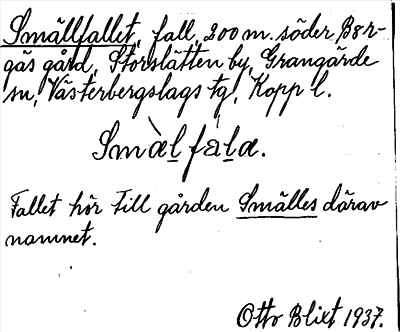 Smällfallet, fall, 200 m. söder Ber-
gås gård, Storslätten by, Grangärde
sn, Västerbergslags tgl, Kopp l.
Smàl fàla.
Fallet hör till gården Smälles därav
namnet.
Otto Blixt 1937.